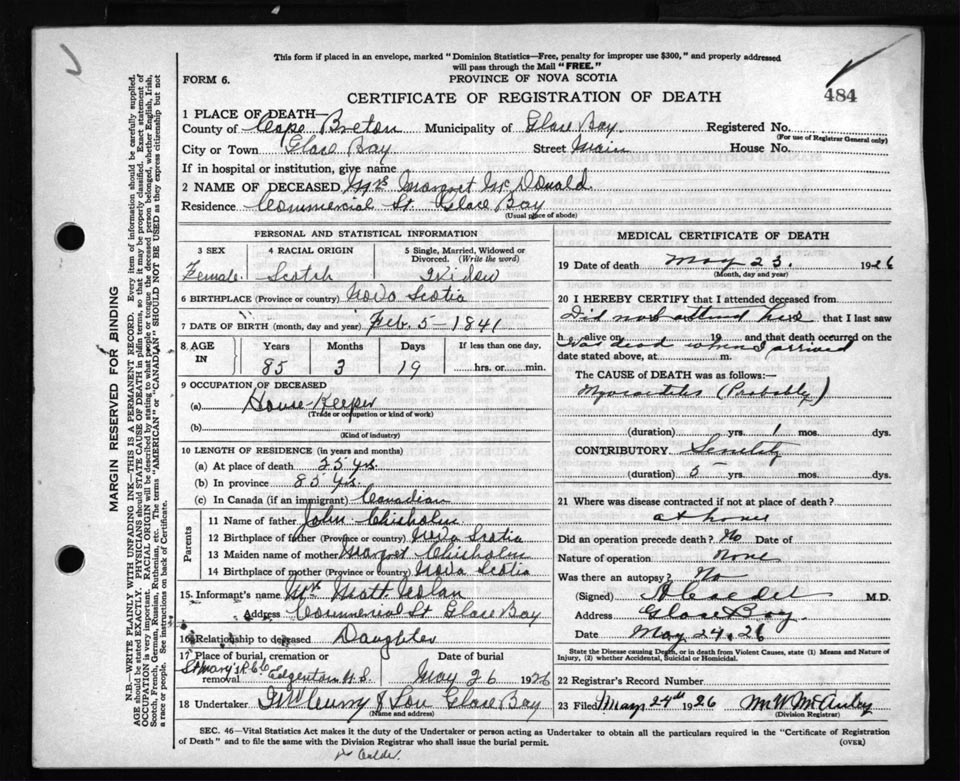 This form if placed in an envelope, marked "Dominion Statistics—Free, penalty for improper use $300," and properly addressed
will pass through the Mail "FREE."
FORM 6.
PROVINCE OF NOVA SCOTIA
484
CERTIFICATE OF REGISTRATION OF DEATH
1 PLACE OF DEATH—
County of Cape Breton Municipality of Glace Bay Registered No.
(For use of Registrar General only)
City or Town Glace Bay Street Main House No.
If in hospital or institution, give name
2 NAME OF DECEASED Mrs Margret McDonald
Residence Commercial St. Glace Bay
(Usual place of abode)
PERSONAL AND STATISTICAL INFORMATION
3 SEX 4 RACIAL ORIGIN 5 Single, Married, Widowed or Divorced. (Write the word)
Female Scotch Widow
6 BIRTHPLACE (Province or country) Nova Scotia
7 DATE OF BIRTH (month, day and year) Feb. 5 - 1841
8 AGE IN Years Months Days If less than one day,
85 3 19 hrs. or min.
9 OCCUPATION OF DECEASED
(a) House Keeper
(Trade or occupation or kind of work)
(b)
(Kind of industry)
10 LENGTH OF RESIDENCE (in years and months)
(a) At place of death 25 yrs.
(b) In province 85 yrs.
(c) In Canada (if an immigrant) Canadian
Parents
11 Name of father John Chisholm
12 Birthplace of father (Province or country) Nova Scotia
13 Maiden name of mother Margret Chisholm
14 Birthplace of mother (Province or country) Nova Scotia
15. Informant's name Matt
Address Commercial St Glace Bay
16 Relationship to deceased Daughter
17 Place of burial, cremation or removal Date of burial
St Mary's R.C. N.S. May 26 1926
18 Undertaker & Son Glace Bay
(Name and address)
MEDICAL CERTIFICATE OF DEATH
19 Date of death May 23. 1926
(Month, day and year)
20 I HEREBY CERTIFY that I attended deceased from
Did not attend her that I last saw
h alive on 19 and that death occurred on the
Was dead when I arrived
date stated above, at m.
The CAUSE of DEATH was as follows:—
Myocarditis (Probably)
(duration) yrs. 1 mos. dys.
CONTRIBUTORY Senility
(duration) 5 yrs. mos. dys.
21 Where was disease contracted if not at place of death?
at home
Did an operation precede death? No Date of
Nature of operation None
Was there an autopsy? No
(Signed) M.D.
Address Glace Bay
Date May 24. 26
State the Disease causing Death, or in death from Violent Causes, state (1) Means and Nature of
Injury, (2) whether Accidental, Suicidal or Homicidal.
22 Registrar's Record Number
23 Filed May 24th 1926 McAuley
(Division Registrar)
SEC. 46—Vital Statistics Act makes it the duty of the Undertaker or person acting as Undertaker to obtain all the particulars required in the "Certificate of Registration
of Death" and to file the same with the Division Registrar who shall issue the burial permit. (OVER)
MARGIN RESERVED FOR BINDING
N.B.—WRITE PLAINLY WITH UNFADING INK—THIS IS A PERMANENT RECORD. Every item of information should be carefully supplied.
AGE should be stated EXACTLY. PHYSICIANS should STATE CAUSE OF DEATH in plain terms, so that it may be properly classified. Exact statement of
OCCUPATION is very important. RACIAL ORIGIN will be described by stating to what people or tongue the deceased person belonged, whether English, Irish,
Scotch, French, German, Russian, Ruthenian, etc. The terms "AMERICAN" or "CANADIAN" SHOULD NOT BE USED as they express citizenship but not
a race or people. See instructions on back of Certificate.